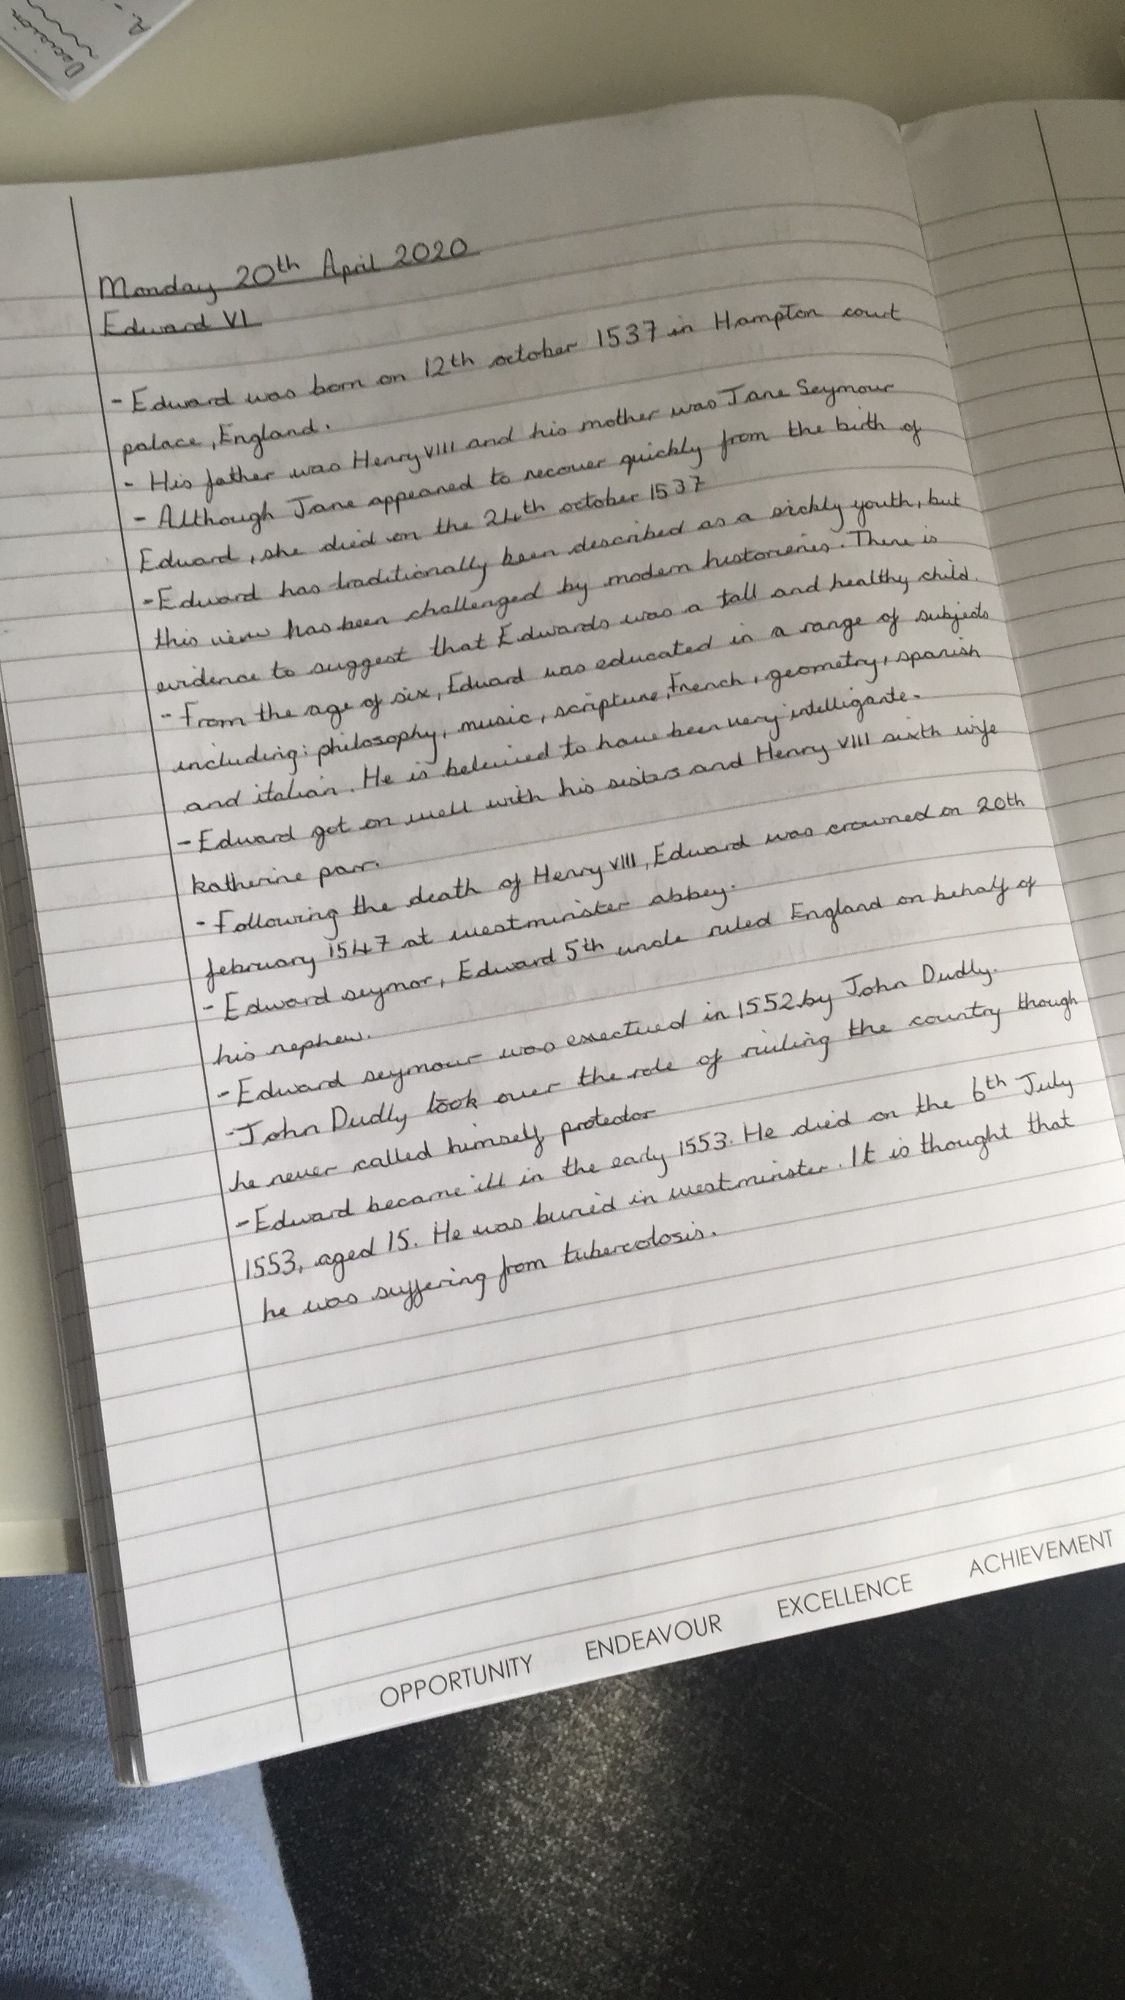 Decision
A.
Monday 20th April 2020
Edward VI
- Edward was born on 12th october 1537 in Hampton court
palace, England.
- His father was Henry VIII and his mother was Jane Seymour
- Although Jane appeared to recover quickly from the birth of
Edward, she died on the 24th october 1537
- Edward has traditionally been described as a sickly youth, but
this view has been challenged by modern historieries. There is
evidence to suggest that Edwards was a tall and healthy child.
- From the age of six, Edward was educated in a range of subjects
including: philosophy, music, scripture, French, geometry, spanish
and italian. He is beleived to have been very intelligante.
- Edward got on well with his sisters and Henry VIII sixth wife
katherine parr.
- Following the death of Henry VIII, Edward was crowned on 20th
february 1547 at westminister abbey.
- Edward seymor, Edward 5th uncle ruled England on behalf of
his nephew.
- Edward seymour was exectued in 1552 by John Dudly.
- John Dudly took over the role of ruling the country though
he never called himself protector
- Edward became ill in the early 1553. He died on the 6th July
1553, aged 15. He was buried in westminister. It is thought that
he was suffering from tubercolosis.
OPPORTUNITY ENDEAVOUR EXCELLENCE ACHIEVEMENT